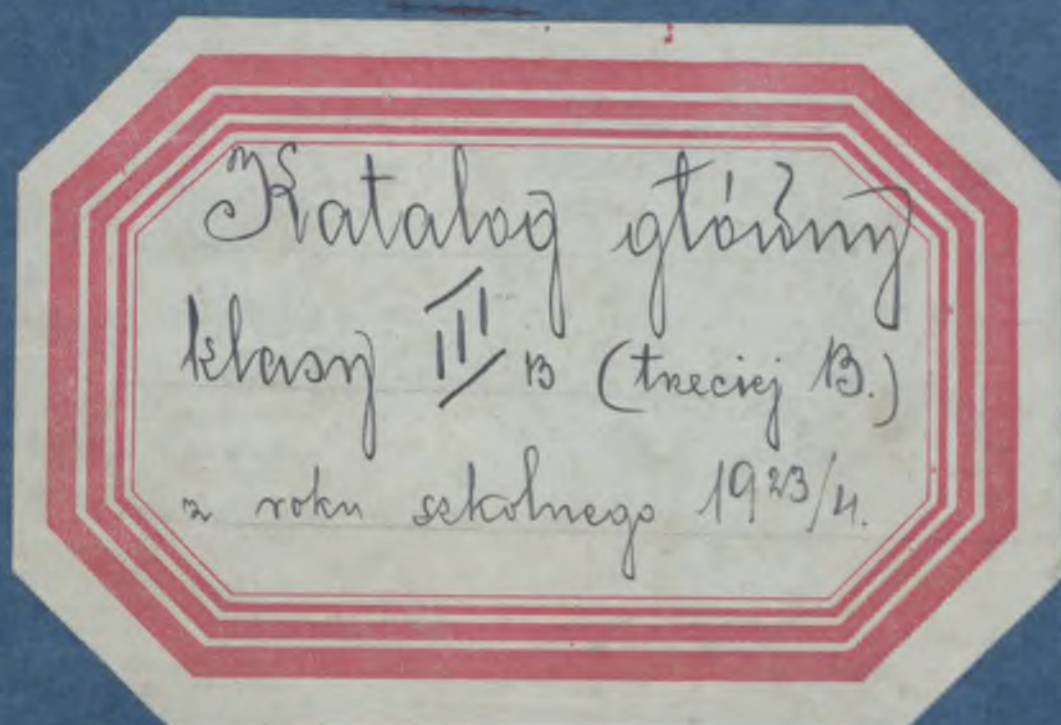 Katalog główny
klasy III B (trzeciej B.)
z roku szkolnego 1923/4.